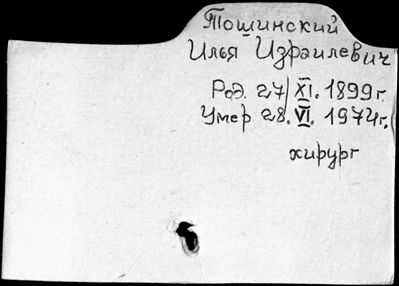 Тошинский
Илья Израилевич
Род. 27/XI. 1899 г.
Умер 28. VI. 1974 г.
хирург